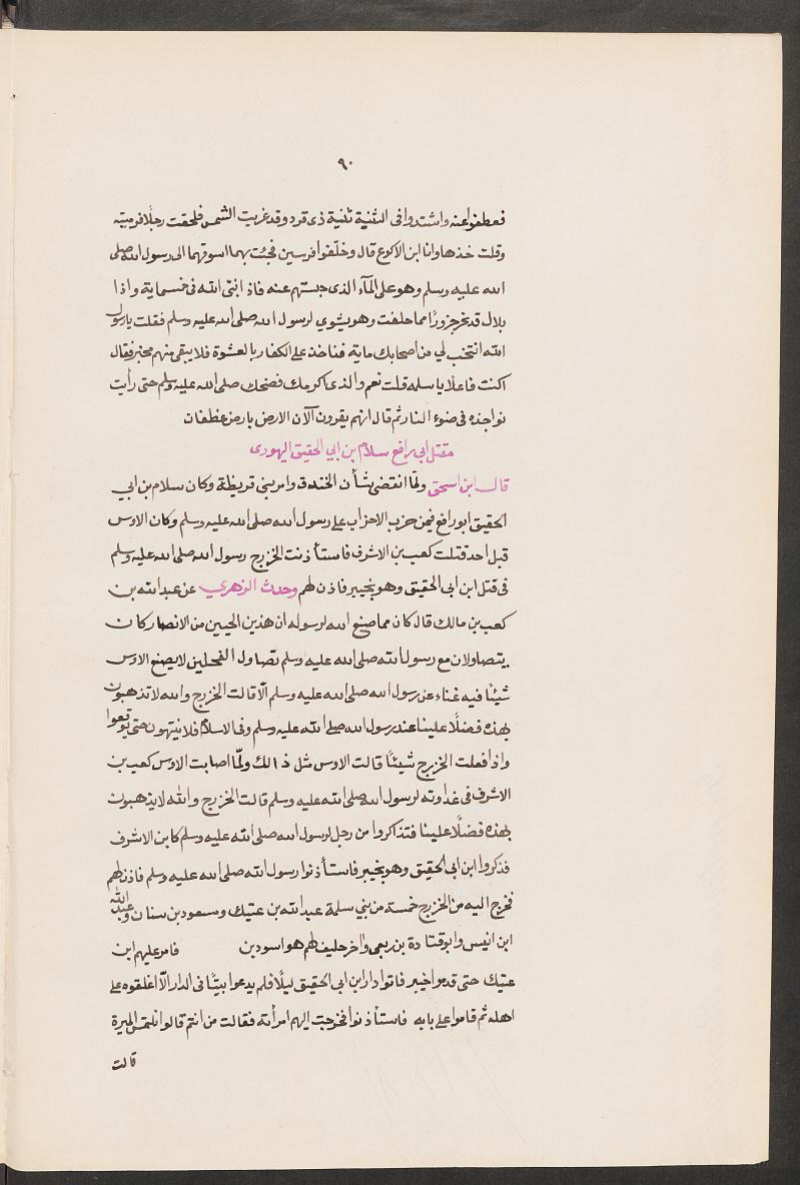 ٩٠
فعطفوا عنه واشتدوا فى الثنية ثنية ذى قرد وقد غربت الشمس فلحقت رجلًا فرميته
وقلت خذها وانا ابن الاكوع قال وخلّفوا فرسين فجئت بهما اسوقهما الى رسول الله صلى
الله عليه وسلم وهو على المآء الذى جليتهم عنه فاذا نبى الله فى خمسماية واذا
بلال قد نحر جزورًا مما خلفت وهو يشوي لرسول الله صلى الله عليه وسلم فقلت يا رسول
الله انتخب لي من اصحابك ماية فناخذ على الكفار بالعشوة فلا يبقى منهم مخبر فقال
اكنت فاعلًا يا سلمه قلت نعم والذى اكرمك فضحك صلى الله عليه وسلم حتى رأيت
نواجذه فى ضوء النار ثم قال انهم يقرون الآن الارض بارض غطفان
مقتل ابى رافع سلام بن ابي الحقيق اليهودى
قال ابن اسحق ولمّا انقضى شأن الخندق وامر بنى قريظة وكان سلام بن ابي
الحقيق ابو رافع فيمن حزب الاحزاب على رسول الله صلى الله عليه وسلم وكان الاوس
قبل احد قتلت كعب بن الاشرف فاستأذنت الخزرج رسول الله صلى الله عليه وسلم
فى قتل ابن ابى الحقيق وهو بخيبر فاذن لهم وحدث الزهري عن عبد الله بن
كعب بن مالك قال كان مما صنع الله لرسوله ان هذين الحيين من الانصار كان
يتصاولان مع رسول الله صلى الله عليه وسلم تصاول الفحلين لا يصنع الاوس
شيئًا فيه غناء عن رسول الله صلى الله عليه وسلم الّا قالت الخزرج والله لا تذهبون
بهذه فضلًا علينا عند رسول الله صلى الله عليه وسلم وفى الاسلام فلا ينتهون حتى يوقعوا
واذا فعلت الخزرج شيئًا قالت الاوس مثل ذالك ولمّا اصابت الاوس كعب بن
الاشرف فى عداوته لرسول الله صلى الله عليه وسلم قالت الخزرج والله لا يذهبون
بهذه فضلًا علينا فتذاكروا من رجل لرسول الله صلى الله عليه وسلم كابن الاشرف
فذكروا ابن ابى الحقيق وهو بخيبر فاستأذنوا رسول الله صلى الله عليه وسلم فاذن لهم
فخرج اليه من الخزرج خمسة من بني سلمة عبد الله بن عتيك ومسعود بن سنان وعبد الله
ابن انيس وابو قتادة بن ربعى واخر حليف لهم هو اسود بن فامر عليهم ابن
عتيك حتى قدموا خيبر فاتوا دار ابن ابى الحقيق ليلًا فلم يدعوا بيتًا فى الدار الّا اغلقوه على
اهله ثم قاموا على بابه فاستأذنوا فخرجت اليهم امرأته فقالت من انتم قالوا نلتمس الميرة
قالت